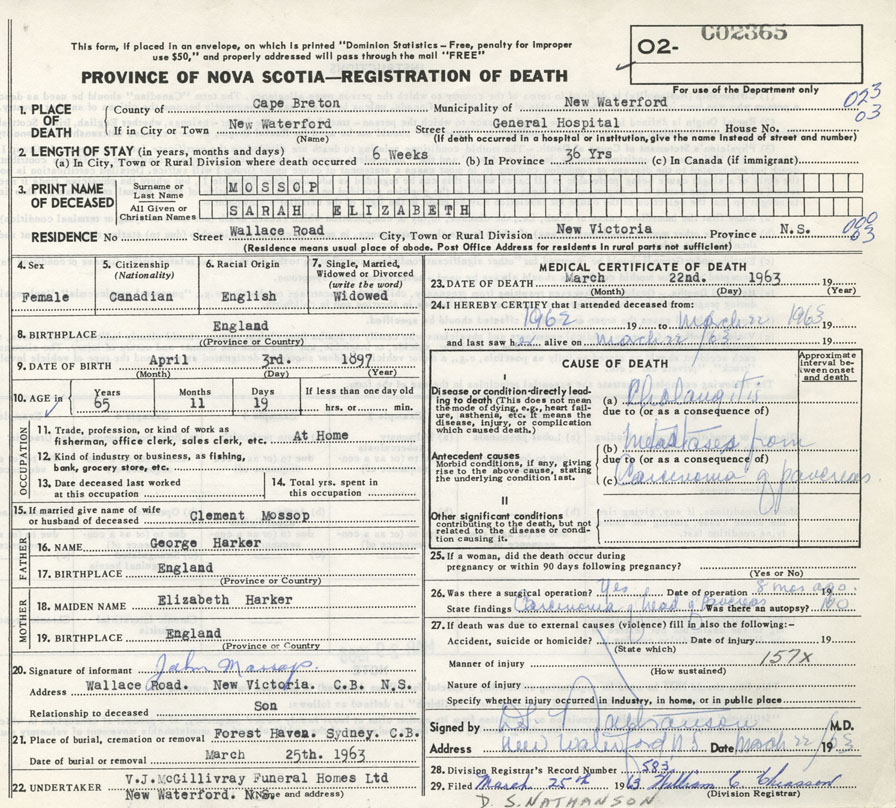 This form, if placed in an envelope, on which is printed "Dominion Statistics - Free, penalty for improper
use $50," and properly addressed will pass through the mail "FREE"
O2- C02365
PROVINCE OF NOVA SCOTIA—REGISTRATION OF DEATH
For use of the Department only
023
03
1. PLACE OF DEATH
County of Cape Breton Municipality of New Waterford
If in City or Town New Waterford Street General Hospital House No.
(Name) (If death occurred in a hospital or institution, give the name instead of street and number)
2. LENGTH OF STAY (in years, months and days)
(a) In City, Town or Rural Division where death occurred 6 Weeks (b) In Province 36 Yrs (c) In Canada (if immigrant)
3. PRINT NAME OF DECEASED
Surname or Last Name MOSSOP
All Given or Christian Names SARAH ELIZABETH
000
03
RESIDENCE No Street Wallace Road City, Town or Rural Division New Victoria Province N.S.
(Residence means usual place of abode. Post Office Address for residents in rural parts not sufficient)
4. Sex
Female
5. Citizenship
(Nationality)
Canadian
6. Racial Origin
English
7. Single, Married,
Widowed or Divorced
(write the word)
Widowed
8. BIRTHPLACE England
(Province or Country)
9. DATE OF BIRTH April 3rd. 1897
(Month) (Day) (Year)
10. AGE in
Years Months Days If less than one day old
65 11 19 hrs. or min.
OCCUPATION
11. Trade, profession, or kind of work as
fisherman, office clerk, sales clerk, etc. At Home
12. Kind of industry or business, as fishing,
bank, grocery store, etc.
13. Date deceased last worked
at this occupation
14. Total yrs. spent in
this occupation
15. If married give name of wife
or husband of deceased Clement Mossop
FATHER
16. NAME George Harker
17. BIRTHPLACE England
(Province or Country)
MOTHER
18. MAIDEN NAME Elizabeth Harker
19. BIRTHPLACE England
(Province or Country
20. Signature of informant John Mossop
Address Wallace Road. New Victoria. C.B. N.S.
Relationship to deceased Son
21. Place of burial, cremation or removal Forest Haven. Sydney. C.B.
Date of burial or removal March 25th. 1963
22. UNDERTAKER V.J.McGillivray Funeral Homes Ltd
New Waterford. N.S.
(Name and address)
MEDICAL CERTIFICATE OF DEATH
23. DATE OF DEATH March 22nd. 1963 19
(Month) (Day) (Year)
24. I HEREBY CERTIFY that I attended deceased from:
1962 19 to March 22 1963 19
and last saw her alive on March 22/63 19
CAUSE OF DEATH
Approximate
interval be-
tween onset
and death
I
Disease or condition directly lead-
ing to death (This does not mean
the mode of dying, e.g., heart fail-
ure, asthenia, etc. It means the
disease, injury, or complication
which caused death.)
(a) Cholangitis
due to (or as a consequence of)
Antecedent causes
Morbid conditions, if any, giving
rise to the above cause, stating
the underlying condition last.
(b) metastases from
due to (or as a consequence of)
(c) Carcinoma of pancreas
II
Other significant conditions
contributing to the death, but not
related to the disease or condi-
tion causing it.
25. If a woman, did the death occur during
pregnancy or within 90 days following pregnancy?
(Yes or No)
26. Was there a surgical operation? Yes Date of operation 8 mos ago. 19
State findings Carcinoma of head of Pancreas Was there an autopsy? No
27. If death was due to external causes (violence) fill in also the following:-
Accident, suicide or homicide? Date of injury 19
(State which)
Manner of injury 157x
(How sustained)
Nature of injury
Specify whether injury occurred in industry, in home, or in public place
Signed by D S Nathanson M.D.
Address New Waterford N S Date March 22 1963
28. Division Registrar's Record Number 583
29. Filed March 25th 1963 William C Chiasson
(Division Registrar)
D. S. NATHANSON